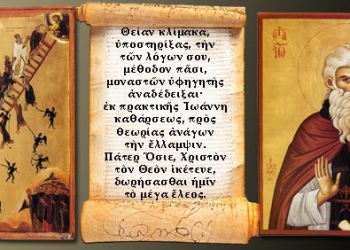 Θείαν κλίμακα,
ὑποστηρίξας, τὴν
τῶν λόγων σου,
μέθοδον πᾶσι,
μοναστῶν ὑφηγητής
ἀναδέδειξαι·
ἐκ πρακτικῆς Ἰωάννη
καθάρσεως, πρὸς
θεωρίας ἀνάγων
τὴν ἔλλαμψιν.
Πάτερ Ὅσιε, Χριστὸν
τὸν Θεὸν ἱκέτευε,
δωρήσασθαι ἡμῖν
τὸ μέγα ἔλεος.